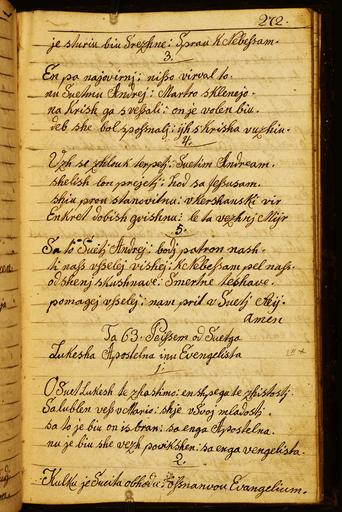 272.
je sturiu biu Srezhne: Sprau K Nebessam.
3.
En pa najovirnj: nisso virval to.
nu Suetmu Andrej: Martro sklenejo.
na Krish ga svessali: on je volen biu.
deb she bol possnalj: ijh s Krisha vuzhiu.
4.
Uzh se zhlouk terpetj: Suetim Andream.
shelish lon prejetj: hod sa Jessusam.
shiu pron stanovitnu: v kershanski vir
Enkrat dobish gvishnu: te ta vezhnj Mijr
5.
Sa tò Suetj Andrej: bodj patron nash.
ti nass vsselej vishej: K Nebessam pelnass.
odshenj skushnave: Smertne teshave.
pomagej vsselej: nam prit v Suetj Rij.
amen
Ta 63. Peissem od Suetga
Lukesha Apostelna inu Evengelista
1.
O Suet Lukesh te zhastimo: en shpegu te zhistostj
Salublen vsso Mario: shje v Svoj mladostj.
sa to je biu on isbran: sa enga Apostelna.
nu je biu she vezh povikshen: sa enga vengelista.
2.
Kulku je Sueita obhodu: Ossnanvou Evangelium.